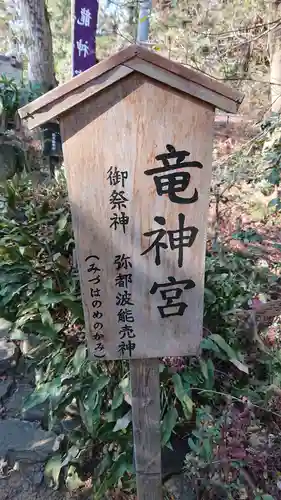 龍神
竜神宮
御祭神 弥都波能売神
(みづはのめのかみ)